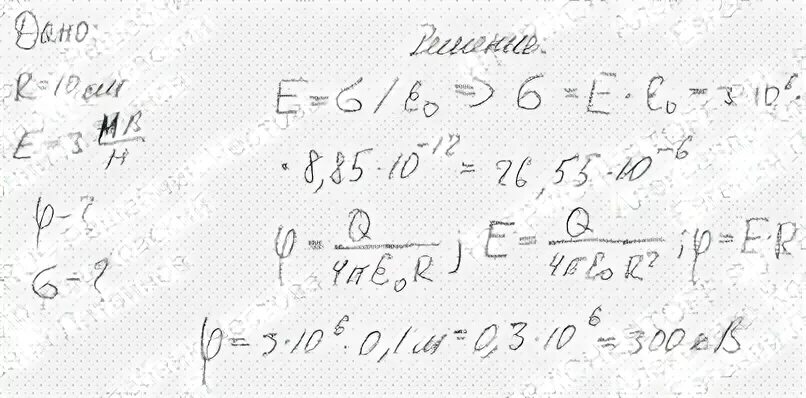 Дано
Решение.
R = 10 см
E = 3 МВ/м
φ - ?
σ - ?
E = σ / ε₀ => σ = E · ε₀ = 3 · 10⁶ ·
· 8,85 · 10⁻¹² = 26,55 · 10⁻⁶
φ = Q / 4πε₀R ; E = Q / 4πε₀R² ; φ = E · R
φ = 3 · 10⁶ · 0,1 м = 0,3 · 10⁶ = 300 кВ